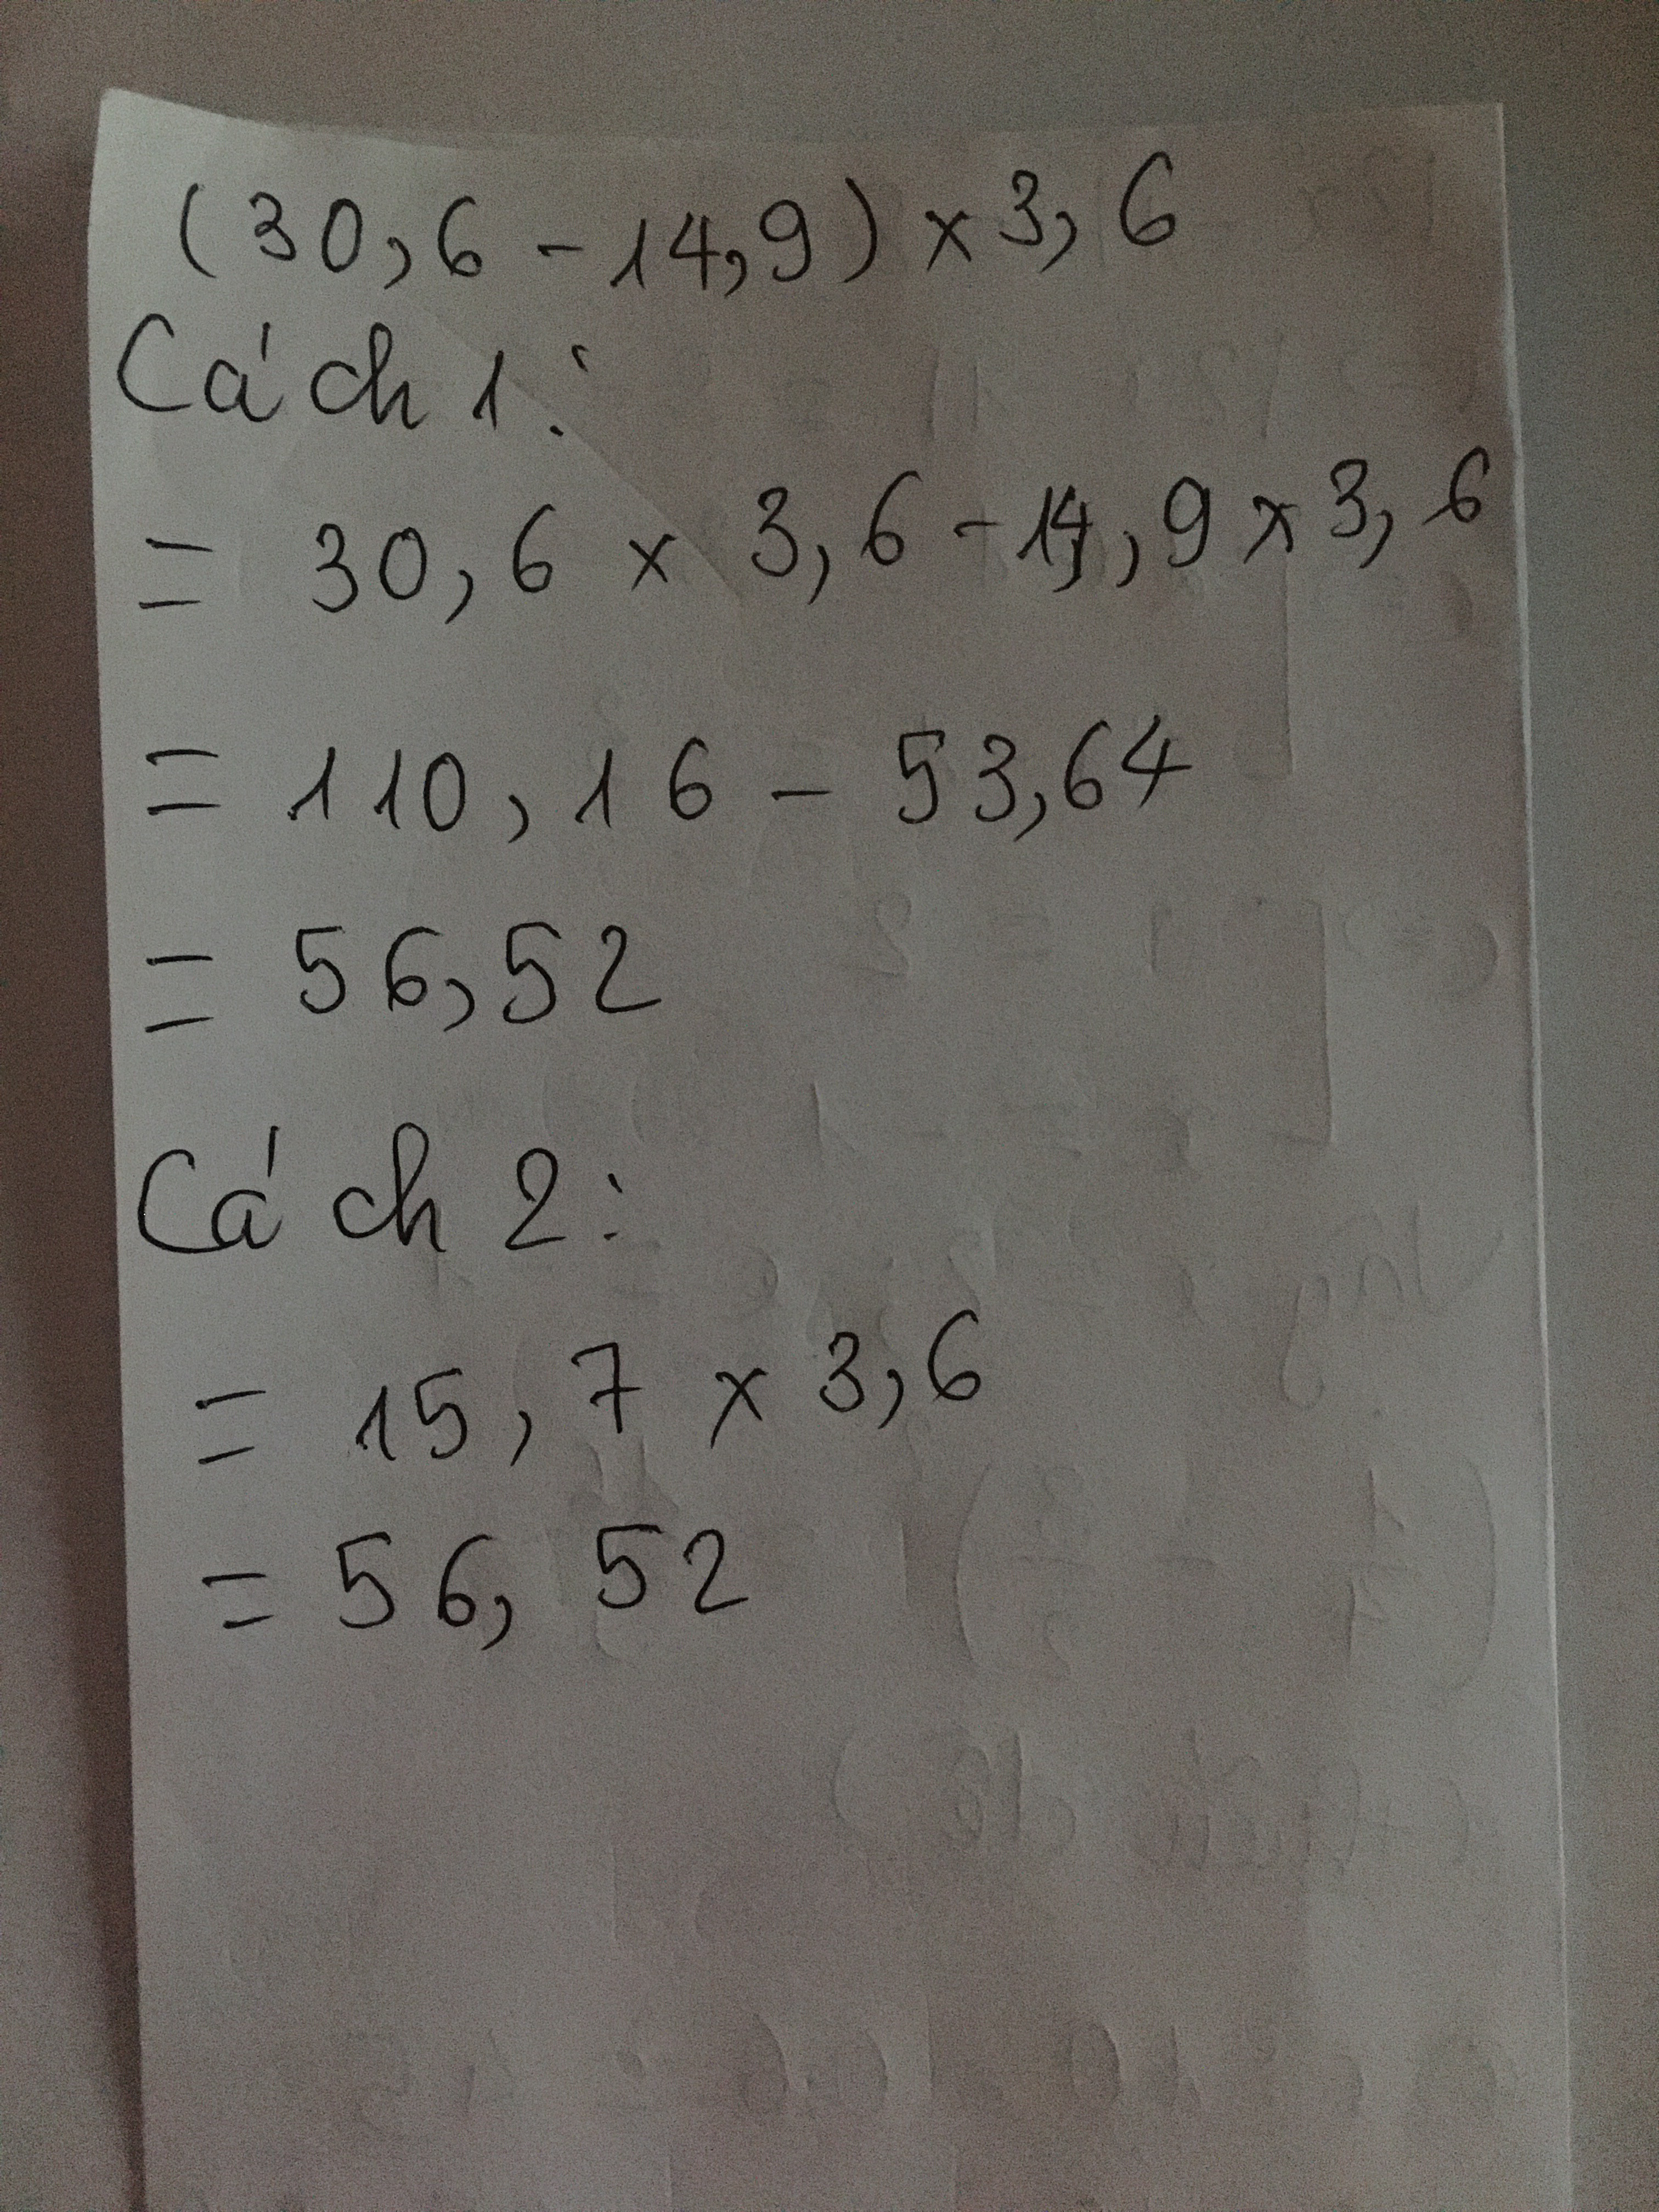 (30,6 - 14,9) × 3,6
Cách 1:
= 30,6 × 3,6 - 14,9 × 3,6
= 110,16 - 53,64
= 56,52
Cách 2:
= 15,7 × 3,6
= 56,52